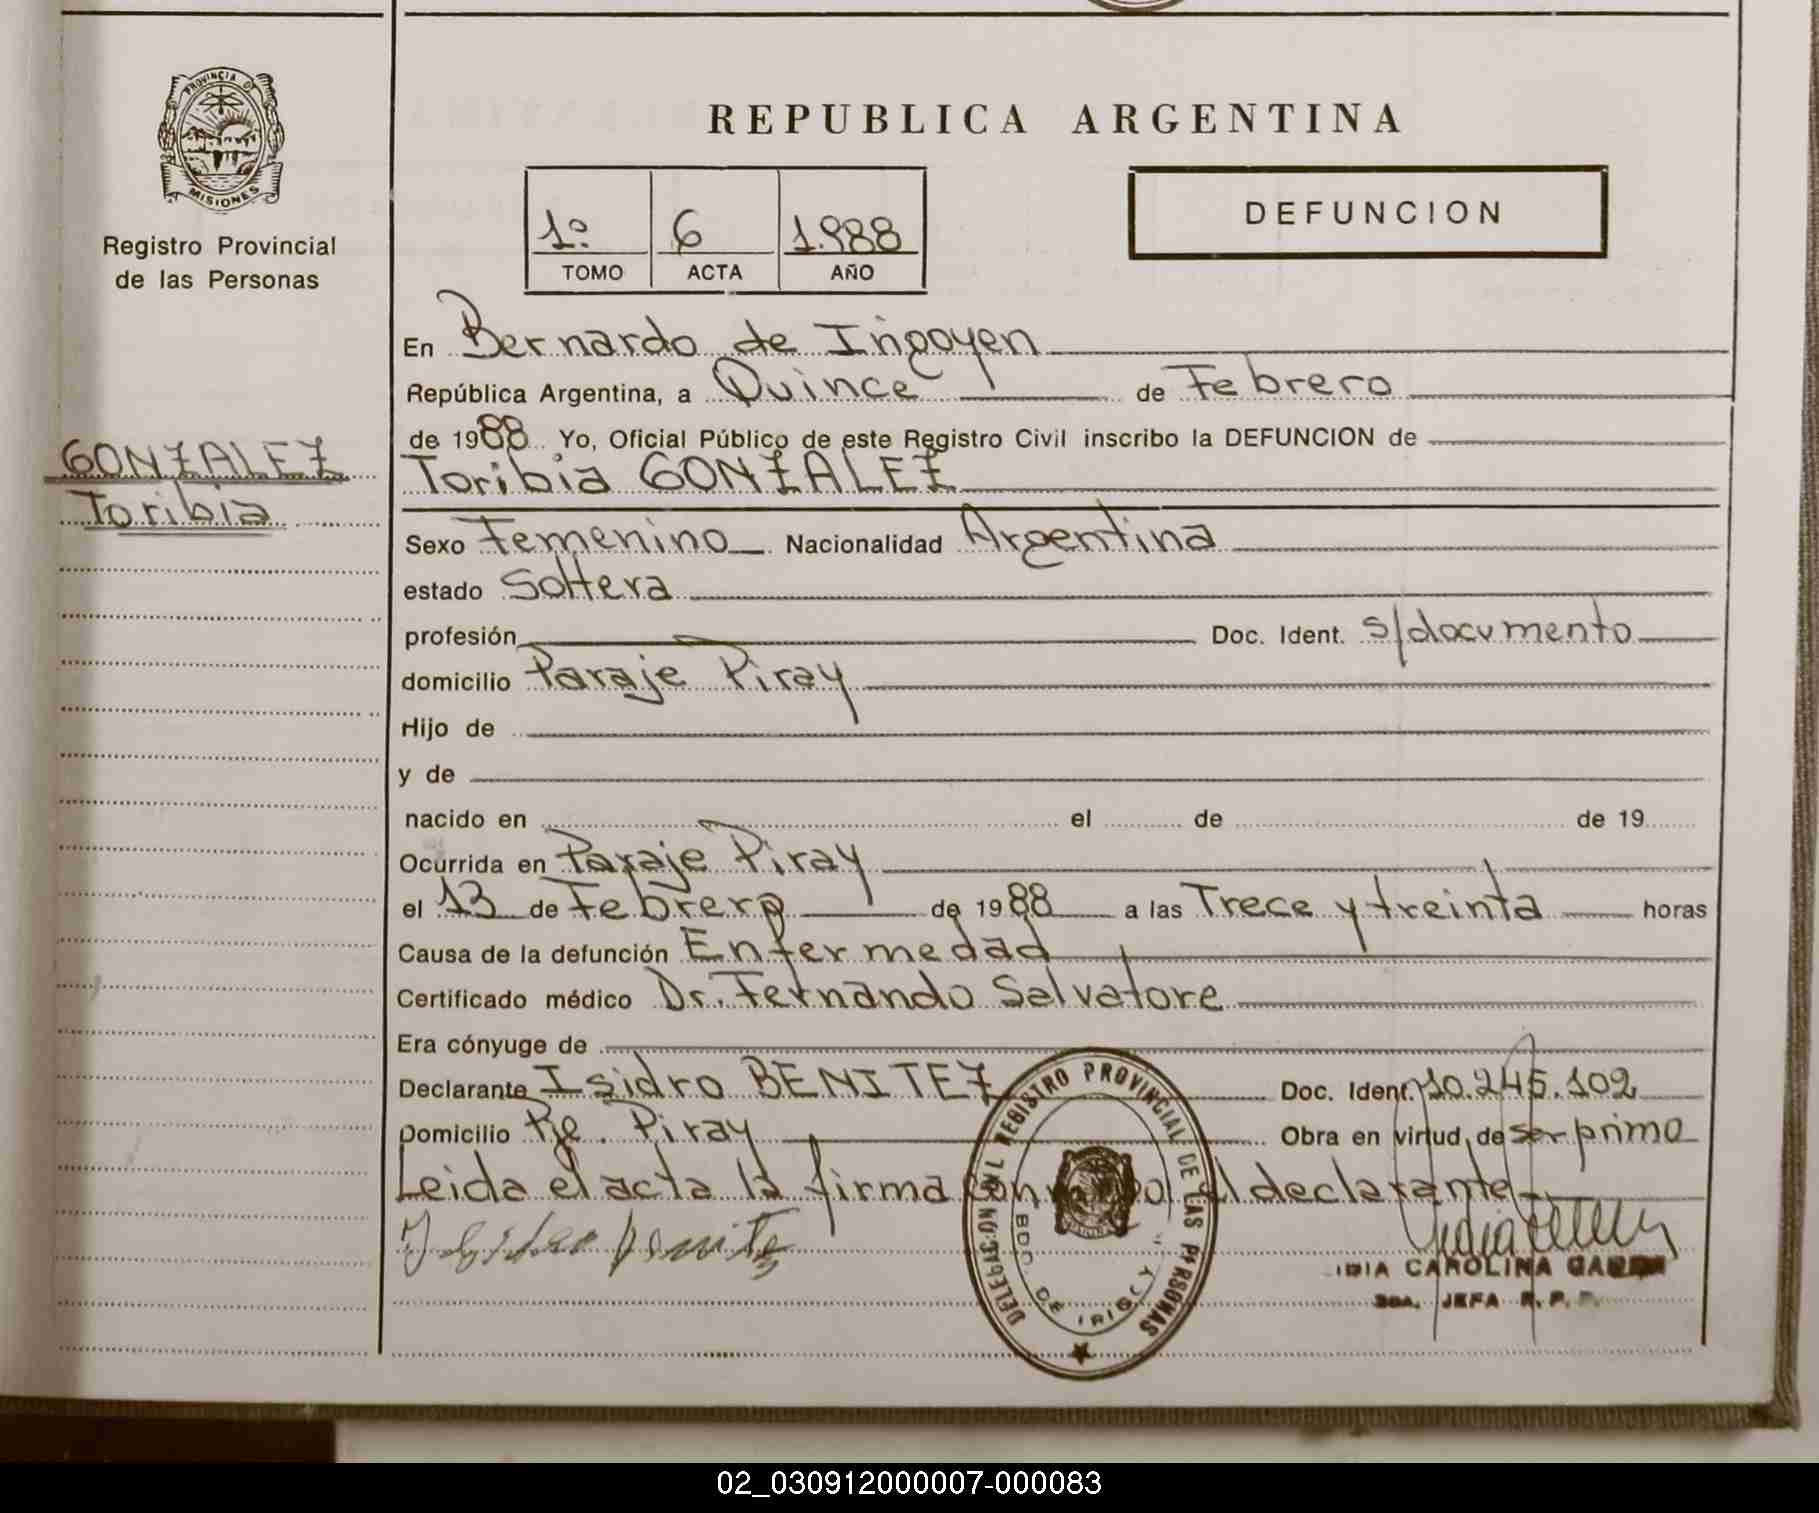 PROVINCIA DE
MISIONES
Registro Provincial
de las Personas
GONZALEZ
Toribia
REPUBLICA ARGENTINA
1º 6 1.988
TOMO ACTA AÑO
DEFUNCION
En Bernardo de Irigoyen
República Argentina, a Quince de Febrero
de 1988 Yo, Oficial Público de este Registro Civil inscribo la DEFUNCION de
Toribia GONZALEZ
Sexo Femenino Nacionalidad Argentina
estado Soltera
profesión Doc. Ident. s/documento
domicilio Paraje Piray
Hijo de
y de
nacido en el de de 19
Ocurrida en Paraje Piray
el 13 de Febrero de 1988 a las Trece y treinta horas
Causa de la defunción Enfermedad
Certificado médico Dr. Fernando Salvatore
Era cónyuge de
Declarante Isidro BENITEZ Doc. Ident. 10.245.102
Domicilio Pje. Piray Obra en virtud de ser primo
Leida el acta la firma el declarante
Isidro Benitez
DELEGACION REGISTRO PROVINCIAL DE LAS PERSONAS
BDO. DE IRIGOY
CAROLINA
JEFA R. P. P.
02_030912000007-000083